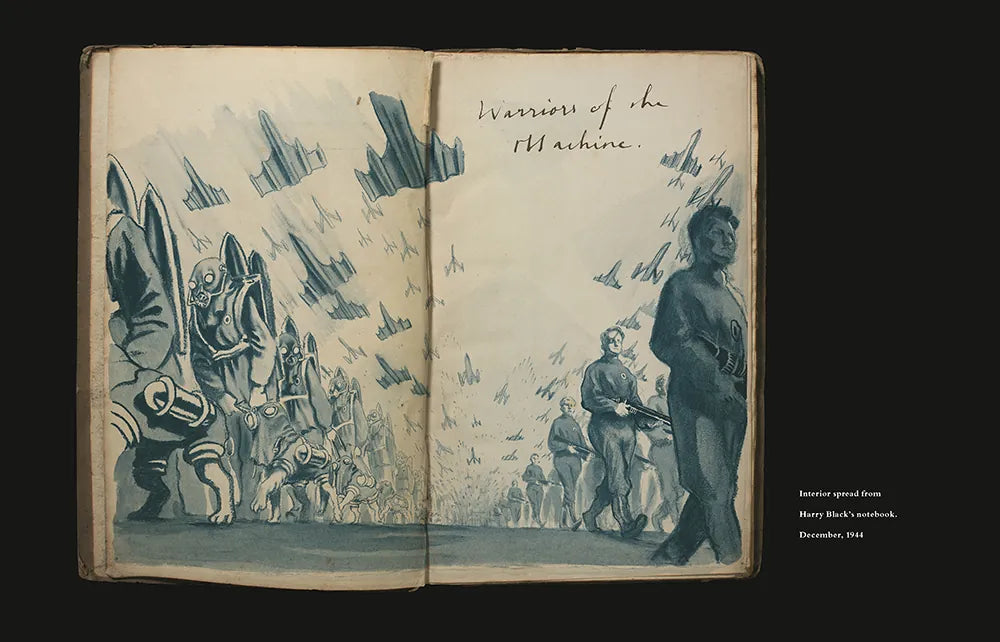 Warriors of the
Machine.
Interior spread from
Harry Black's notebook.
December, 1944